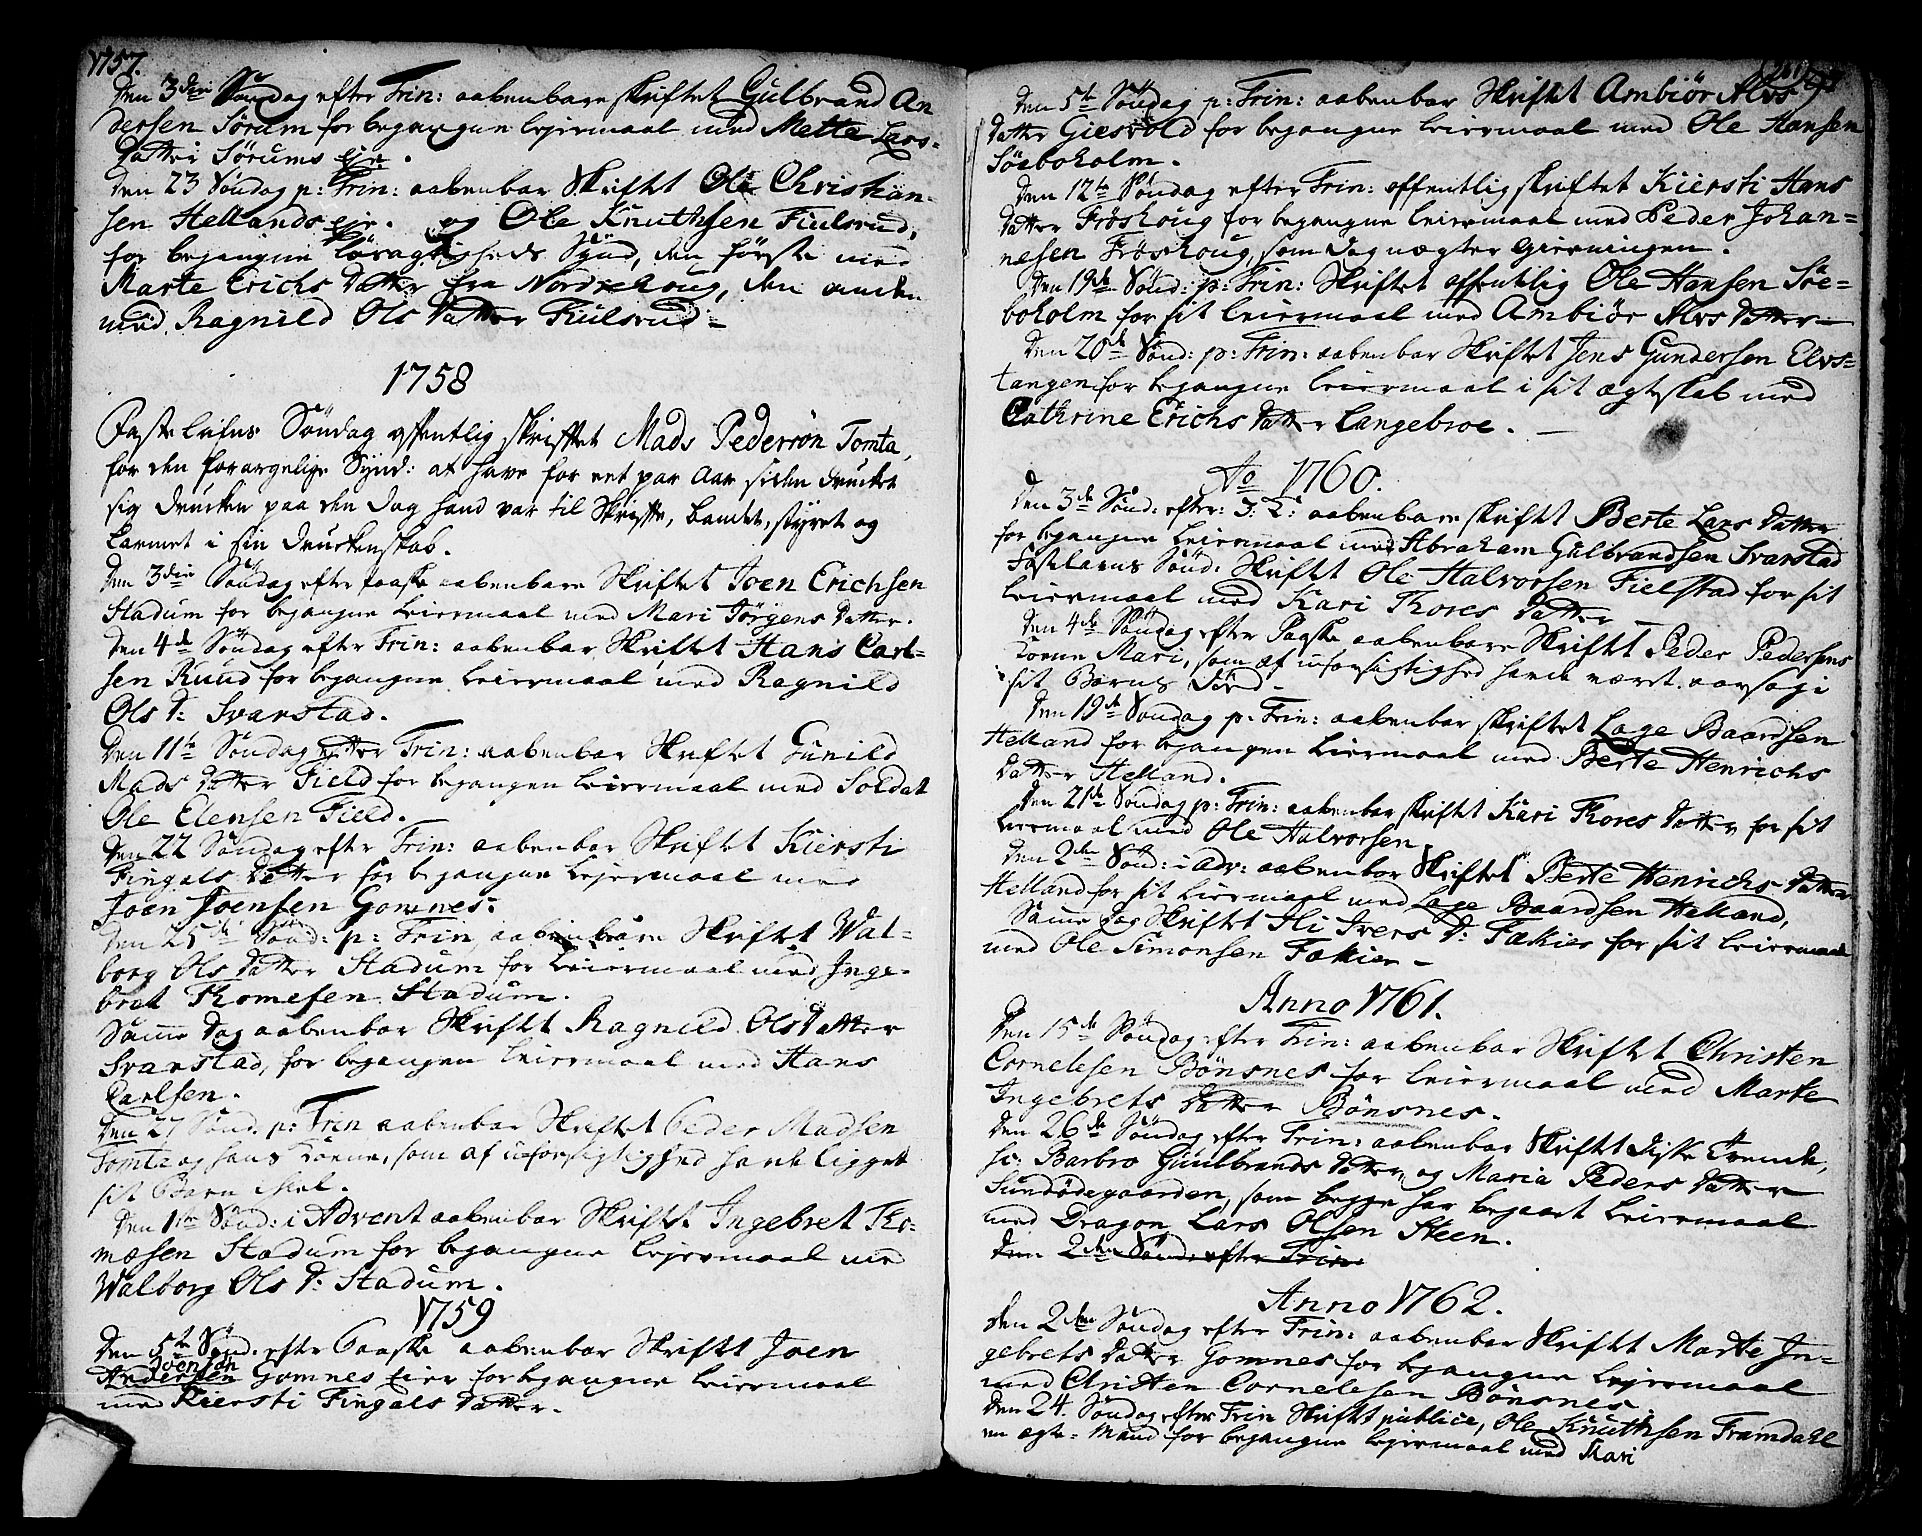 1757.
Den 3die Søndag efter Trin: aabenbare skriftet Gulbrand An
dersen Sørum for begangne lejermaal med Mette Lars-
Datter Sørums eje.
Den 23 Søndag p: Trin: aabenbar Skrifft Ole Christian-
sen Hellands eje. og Ole Knuthsen Fiulsrud,
for begangne Løsagtigheds Synd, den første med
Marte Erichs Datter fra Nordrehoug, den anden
med Ragnild Ols Datter Fiulsrud -
1758
Faste Lafns Søndag offentlig skrifftet Mads Pedersøn Tomta,
for den forargelige Synd: at have for et par Aar siden drucket
sig drucken paa den Dag hand var til Skrifte, bandet, styret og
larmet i sin Druckenskab.
Den 3die Søndag efter paaske aabenbare Skrifft Joen Erichsen
Stadum for begangne leiermaal med Mari Jørgens Datter.
Den 4de Søndag efter Trin: aabenbar Skrifft Hans Carl-
sen Ruud for begangne leiermaal med Ragnild
Ols D: Svarstad.
Den 11te Søndag efter Trin: aabenbar Skrifft Gunild
Mads Datter Field for begangen leiermaal med Soldat
Ole Elensen Field.
Den 22 Søndag efter Trin: aabenbar Skrifft Kiersti
Fingals Datter for begangne lejermaal med
Joen Joensen Gomnes.
Den 25de Sønd: p: Trin aabenbare Skrifft Wal-
borg Ols Datter Stadum for leiermaal med Inge-
bret Thomesen Stadum.
Samme Dag aabenbar Skrifft Ragnild Ols Datter
Svarstad, for begangen leiermaal med Hans
Carlsen.
Den 27 Sønd. p: Trin aabenbar Skrifft Peder Madsen
Tomta og hans Kone, som af uforsigtighed hafde ligget
sit Barn ihiel.
Den 1ste Sønd: i Advent aabenbar Skrifft Ingebret Tho-
mæsen Stadum for begangne lejermaal med
Walborg Ols D: Stadum.
1759
Den 5te Sønd. efter Paaske aabenbar Skrifft Joen
Joensen
Andersen Gomnes eier for begangne leiermaal
med Kiersti Fingals Datter.
Den 5te Søndag p: Trin: aabenbar Skrifft Ambiør Alvs
Datter Giesvold for begangne leiermaal med Ole Hansen
Søeboholm.
Den 12te Søndag efter Trin: offentlig skriftet Kiersti Hans
Datter Frøshoug for begangne leiermaal med Peder Johan-
nesen Frøshoug, som dog nægter Gierningen.
Den 19de Sønd: p: Trin: Skriftet offentlig Ole Hansen Søe-
boholm for sit leiermaal med Ambiør Alvs Datter -
Den 20de Sønd: p: Trin: aabenbar Skriftet Jens Gundersen Elvs-
tangen for begangne leiermaal i sit ægteskab med
Cathrine Erichs Datter Langebroe. -
Ao 1760.
Den 3de Sønd: efter: 3: K: aabenbare skrifft Berte Lars Datter
for begangne leiermaal med Abraham Gulbrandsen Svarstad
Fastelavns Sønd: Skrifft Ole Halvorsen Fielstad for sit
leiermaal med Kari Thores Datter -
Den 4de Søndag efter Paaske aabenbare Skrifft Peder Pedersens
Kone Mari, som af uforsigtighed hafde været aarsag i
sit Barns Død -
Den 19de Søndag p: Trin: aabenbar skriftet Lage Baardsen
Helland for begangen leiermaal med Berte Henrichs
Datter Helland.
Den 21de Søndag p: Trin: aabenbar skrifft Kari Thores Datter for sit
leiermaal med Ole Halvorsen
Den 2den Sønd: i Adv: aabenbar Skriftet Berte Henrichs Datter
Helland for sit leiermaal med Lage Baardsen Helland,
Samme Dag Skrifft Sli Ivers D: Fækier for sit leiermaal
med Ole Simonsen Fækier -
Anno 1761.
Den 15de Søndag efter Trin: aabenbar Skrifft Christen
Cornelesen Bønsnes for leiermaal med Marte
Ingebrets Datter Bønsnes.
Den 26de Søndag efter Trin: aabenbar Skrifft Tvende,
si: Barbro Gulbrands Datter og Maria Peders Datter
Sundødegaarden, som begge har begaaet leiermaal
med Dragon Lars Olsen Steen.
Den 2den Sønd: efter Trin
Anno 1762.
Den 2den Søndag efter Trin: aabenbar Skrifft Marte In-
gebrets Datter Gomnes for begangne lejermaal
med Christen Cornelesen Bønsnes
Den 24. Søndag efter Trin Skrifft publice, Ole Knuthsen Framdahl
en ægte-Mand for begangne lejermaal med Mari